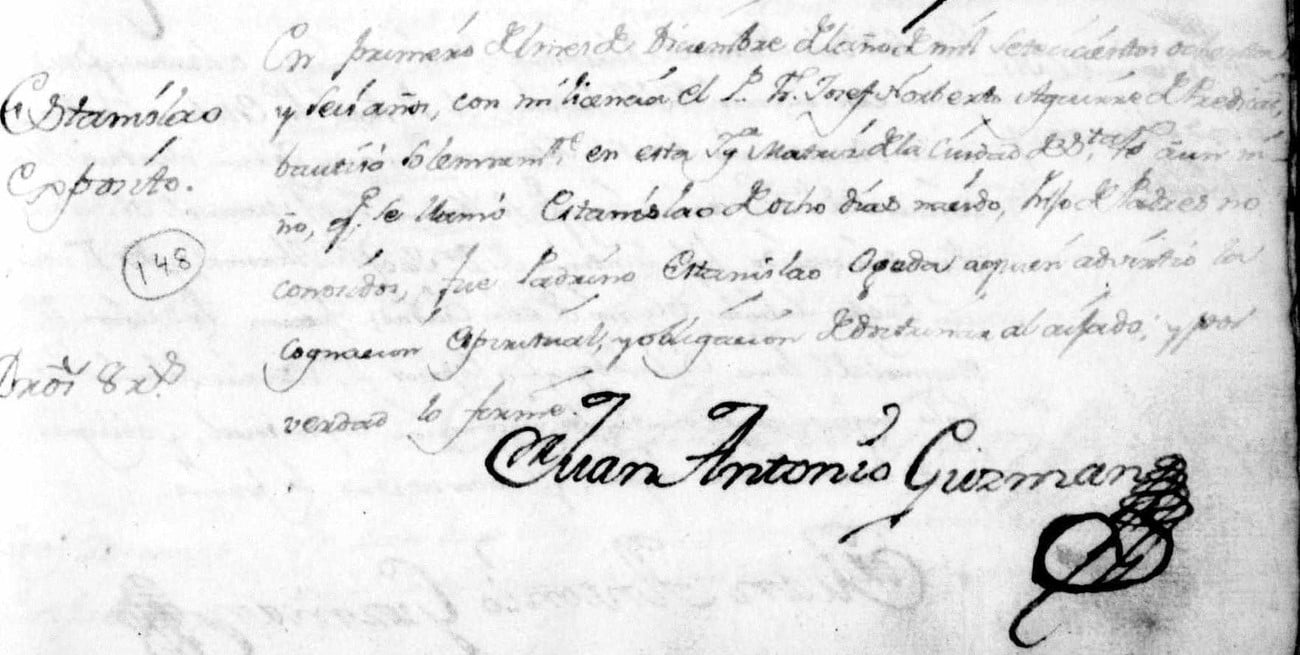 Estanislao
Exposito.
148
Dros. 8 rs.
En primero del mes de Diciembre del año de mil setecientos ochenta
y seis años, con mi licencia, el P. Fr. Josef Norberto Aguirre de Predicas,
bautisó solemnamte. en esta Yga. Matris de la Ciudad de Sta. Fe aun ni-
ño, q. se llamó Estanislao de ocho dias nasido, hijo de Padres no
conosidos, fue Padrino Estanislao Ojeda aquien advirtió la
cognacion espiritual, y obligacion de doctrinar al aijado; y por
verdad lo firme.
Juan Antonio Guzman